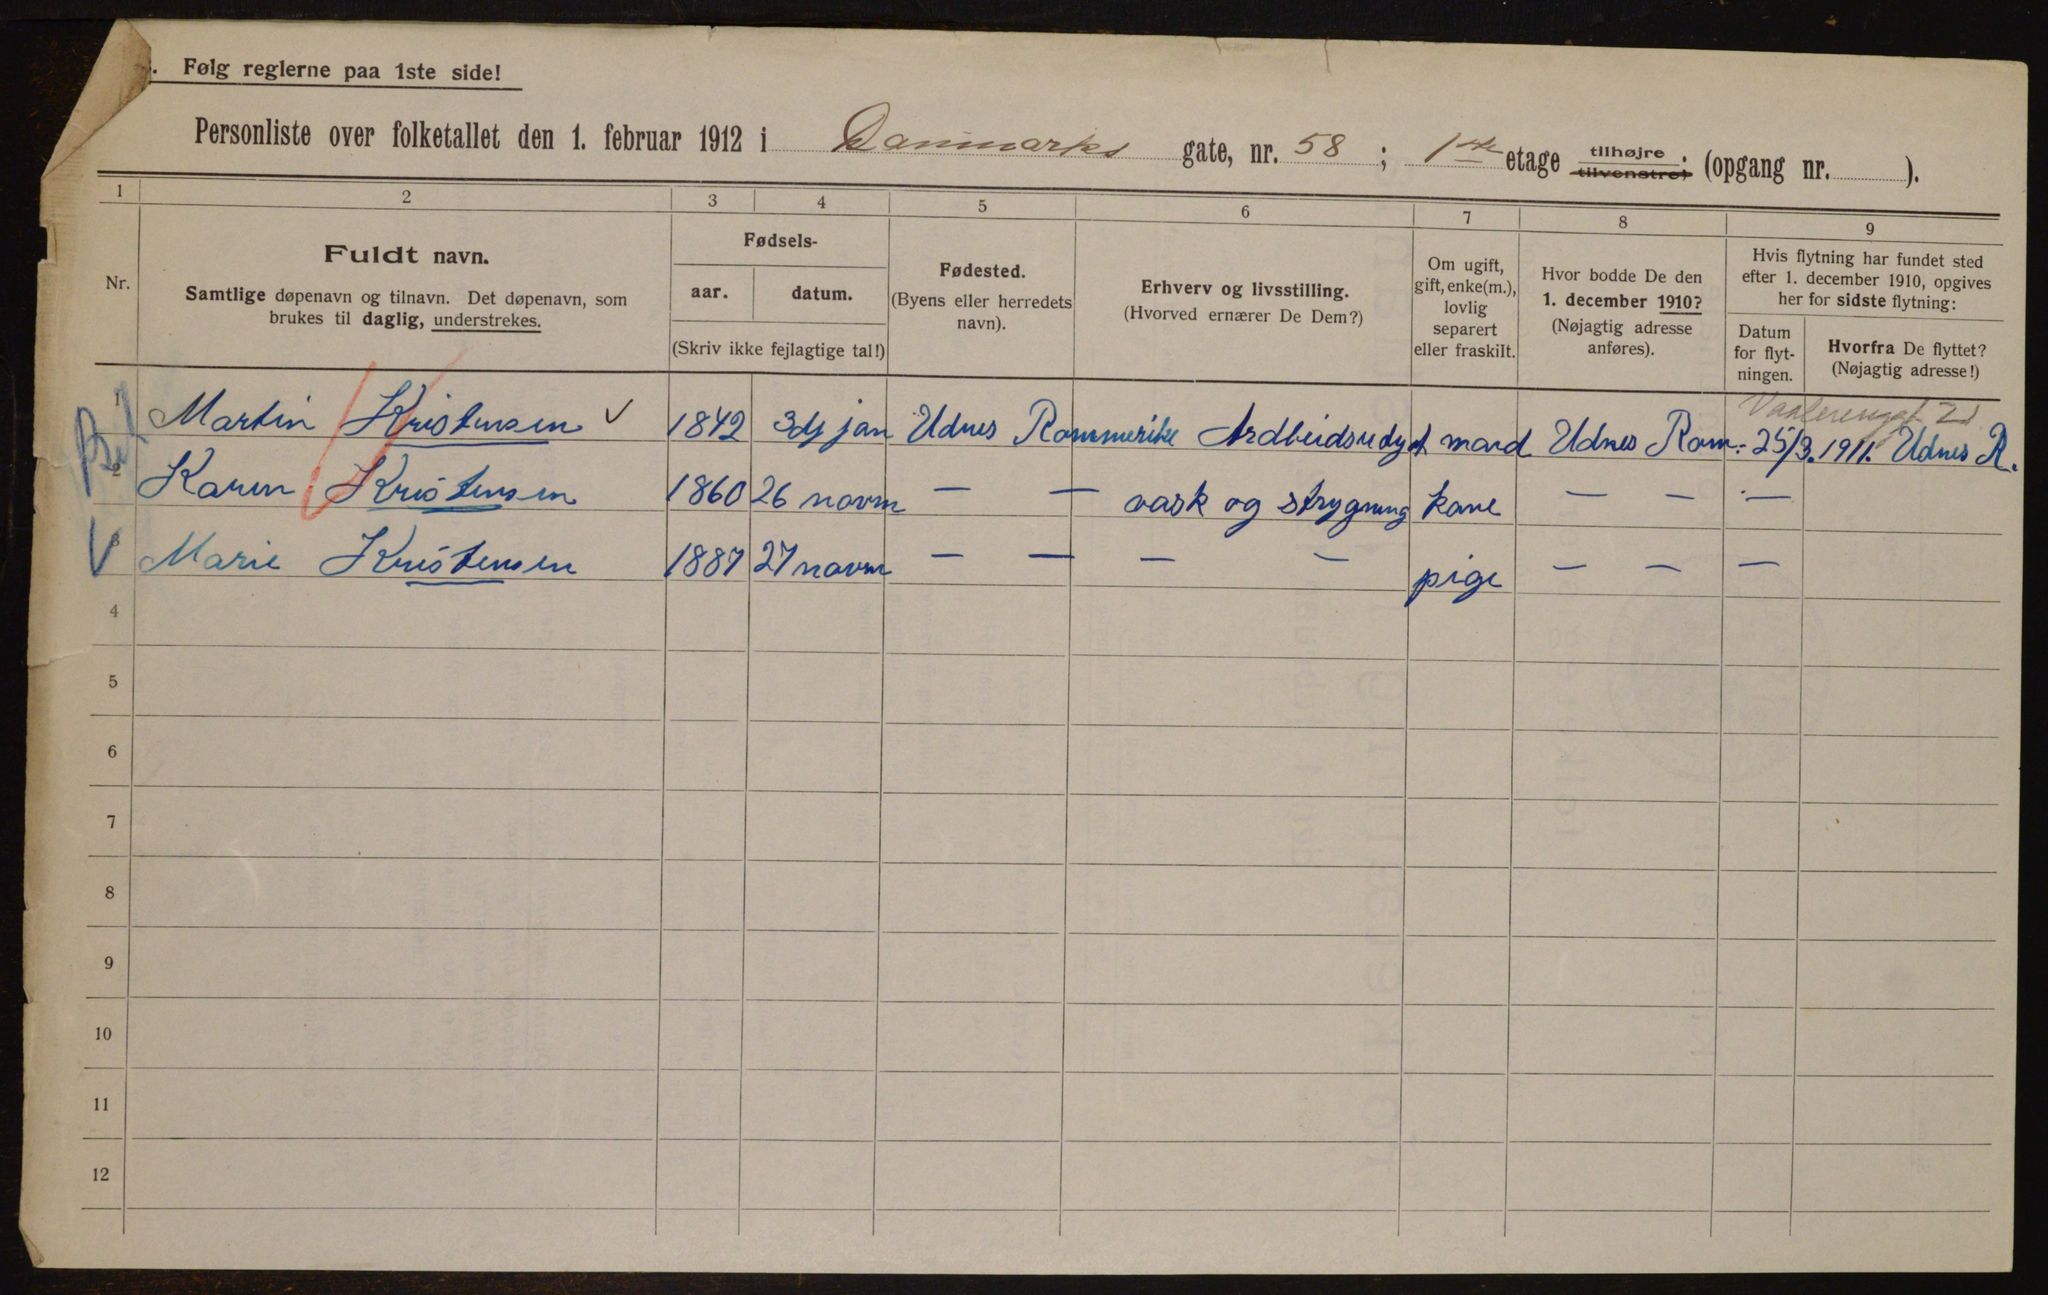 Følg reglerne paa 1ste side!
Personliste over folketallet den 1. februar 1912 i Danmarks gate, nr. 58 ; 1ste etage tilhøjre tilvenstre; (opgang nr. ).
1 2 3 4 5 6 7 8 9
Nr.
Fuldt navn.
Samtlige døpenavn og tilnavn. Det døpenavn, som
brukes til daglig, understrekes.
Fødsels-
aar. datum.
(Skriv ikke fejlagtige tal!)
Fødested.
(Byens eller herredets
navn).
Erhverv og livsstilling.
(Hvorved ernærer De Dem?)
Om ugift,
gift, enke(m.),
lovlig
separert
eller fraskilt.
Hvor bodde De den
1. december 1910?
(Nøjagtig adresse
anføres).
Hvis flytning har fundet sted
efter 1. december 1910, opgives
her for sidste flytning:
Datum
for flyt-
ningen.
Hvorfra De flyttet?
(Nøjagtig adresse!)
Vaalerenggt 21
1 Martin Kristensen 1842 3dj jan Udnes Rommerike Ardbeidsudygt mand Udnes Rom. 25/3. 1911. Udnes R.
2 Karen Kristensen 1860 26 novm — — vask og strygning kone — — —
3 Marie Kristensen 1887 27 novm — — — — pige — — —
4
5
6
7
8
9
10
11
12